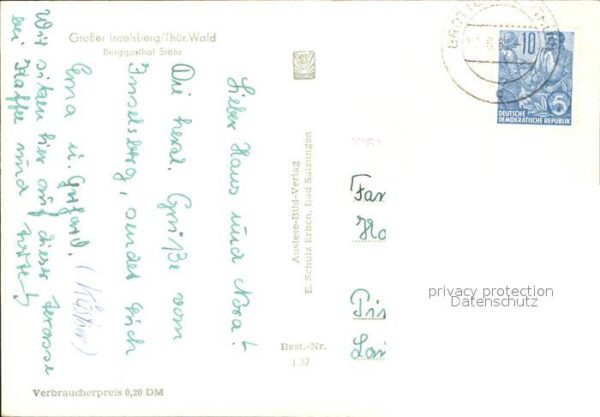 Großer Inselsberg/Thür. Wald
Berggasthof Stöhr
Lieber Hans und Nora!
Die herzl. Grüße vom
Inselsberg, sendet Euch
Erna u. Gerhard.
Wir sitzen hier auf dieser Terasse
bei Kaffee und Torte!
Verbraucherpreis 0,20 DM
Auslese-Bild-Verlag
E. Schulz Erben, Bad Salzungen
Best.-Nr.
J 37
10
5
DEUTSCHE
DEMOKRATISCHE REPUBLIK
Fam
privacy protection
Datenschutz